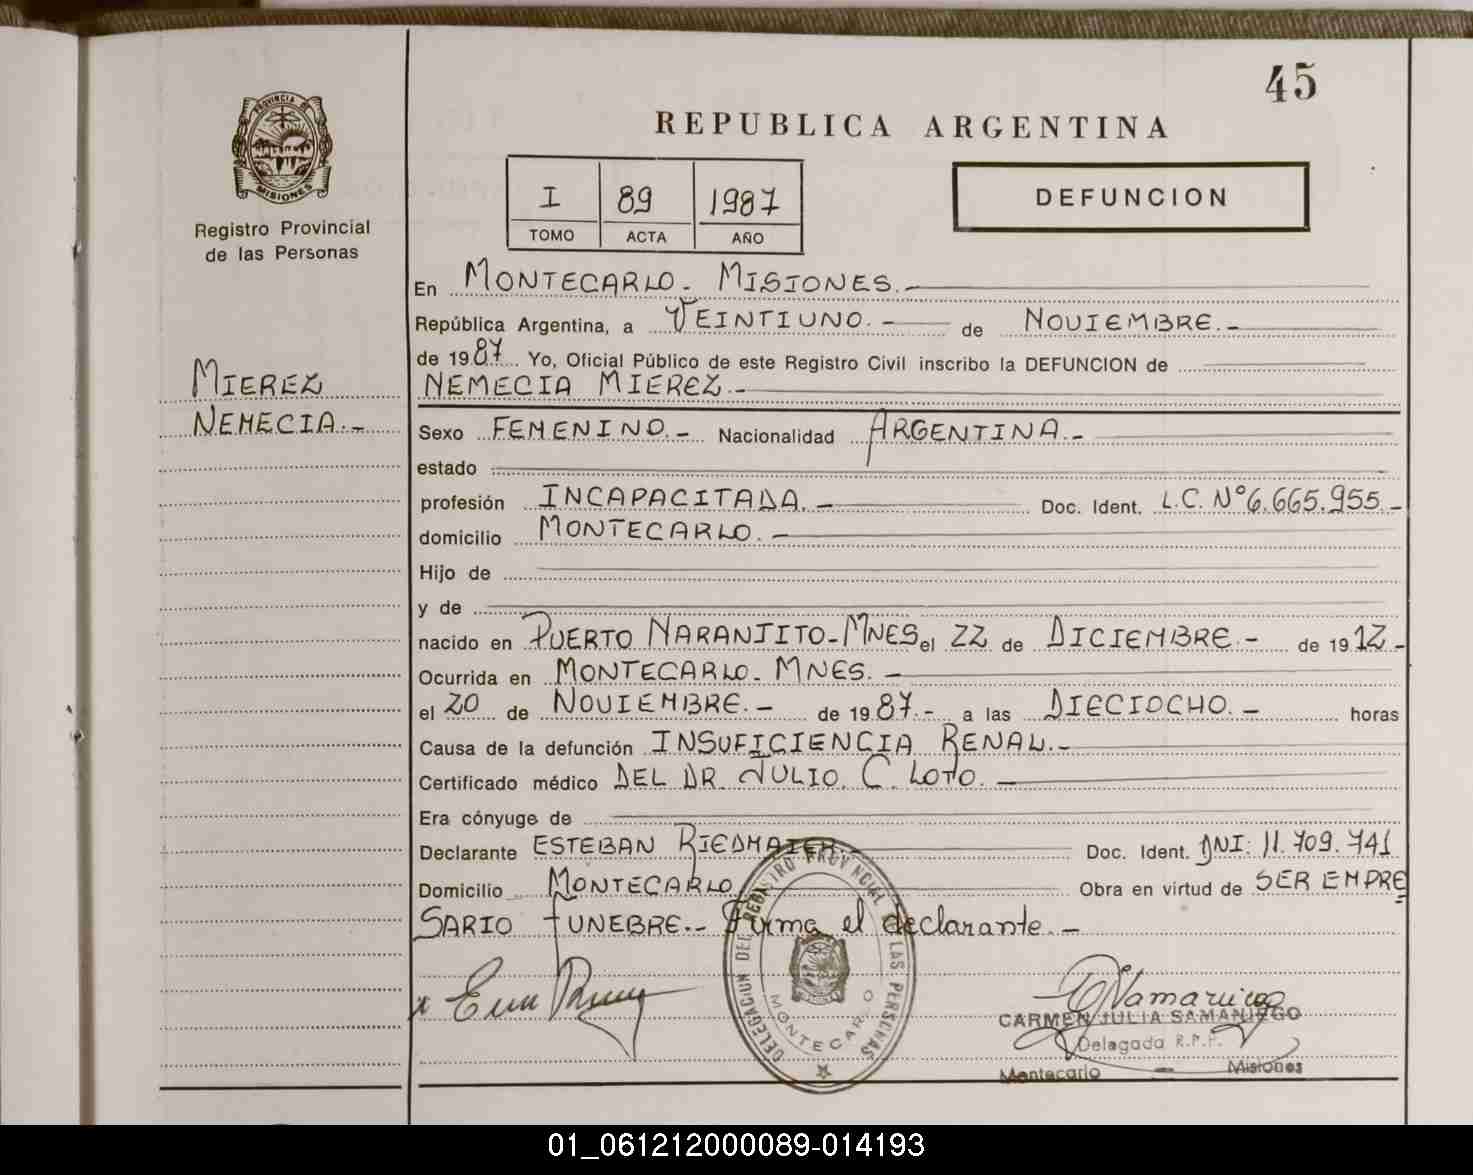 45
REPUBLICA ARGENTINA
PROVINCIA DE
MISIONES
Registro Provincial
de las Personas
I 89 1987
TOMO ACTA AÑO
DEFUNCION
MIEREZ
NEMECIA.-
En MONTECARLO - MISIONES.-
República Argentina, a VEINTIUNO.- de NOVIEMBRE.-
de 1987 Yo, Oficial Público de este Registro Civil inscribo la DEFUNCION de
NEMECIA MIEREZ.-
Sexo FEMENINO.- Nacionalidad ARGENTINA.-
estado
profesión INCAPACITADA.- Doc. Ident. L.C. N° 6.665.955.-
domicilio MONTECARLO.-
Hijo de
y de
nacido en PUERTO NARANJITO-MNES el 22 de DICIEMBRE.- de 1912-
Ocurrida en MONTECARLO - MNES.-
el 20 de NOVIEMBRE.- de 1987.- a las DIECIOCHO.- horas
Causa de la defunción INSUFICIENCIA RENAL.-
Certificado médico DEL DR. JULIO. C. LOTO.-
Era cónyuge de
Declarante ESTEBAN RIEDMAIER.- Doc. Ident. DNI: 11.709.741
Domicilio MONTECARLO Obra en virtud de SER EMPRE
SARIO FUNEBRE.- Firma el declarante.-
DELEGACION DEL REGISTRO PROVINCIAL DE LAS PERSONAS
MONTECARLO
CARMEN JULIA SAMANIEGO
Delegada R.P.P.
Montecarlo - Misiones
01_061212000089-014193